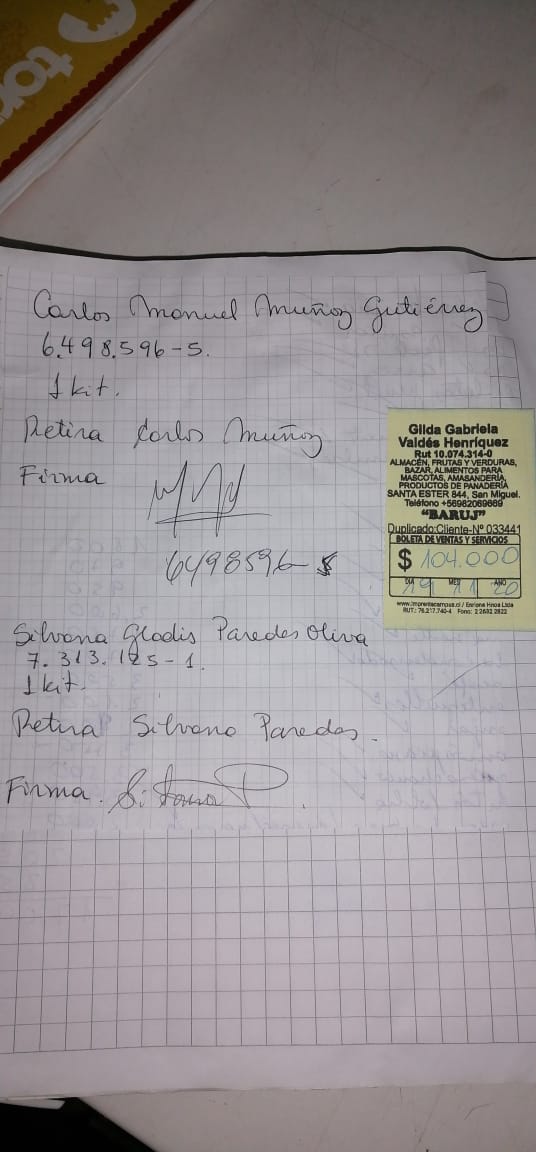 Carlos Manuel Muñoz Gutiérrez
6.498.596-5.
1 kit.
Retira Carlos Muñoz
Firma
6498596-5
Silvana Gladis Paredes Oliva
7.313.125-1.
1 kit.
Retira Silvana Paredes.
Firma. Silvana P.
Gilda Gabriela
Valdés Henríquez
Rut 10.074.314-0
ALMACÉN, FRUTAS Y VERDURAS,
BAZAR, ALIMENTOS PARA
MASCOTAS, AMASANDERÍA,
PRODUCTOS DE PANADERÍA
SANTA ESTER 844, San Miguel.
Teléfono +56982069669
"BARUJ"
Duplicado:Cliente-Nº 033441
BOLETA DE VENTAS Y SERVICIOS
$ 104.000
DIA MES AÑO
19 11 20
www.imprentacampus.cl / Enrique Hnos Ltda
RUT.: 76.217.740-4 Fono: 2 2632 2822